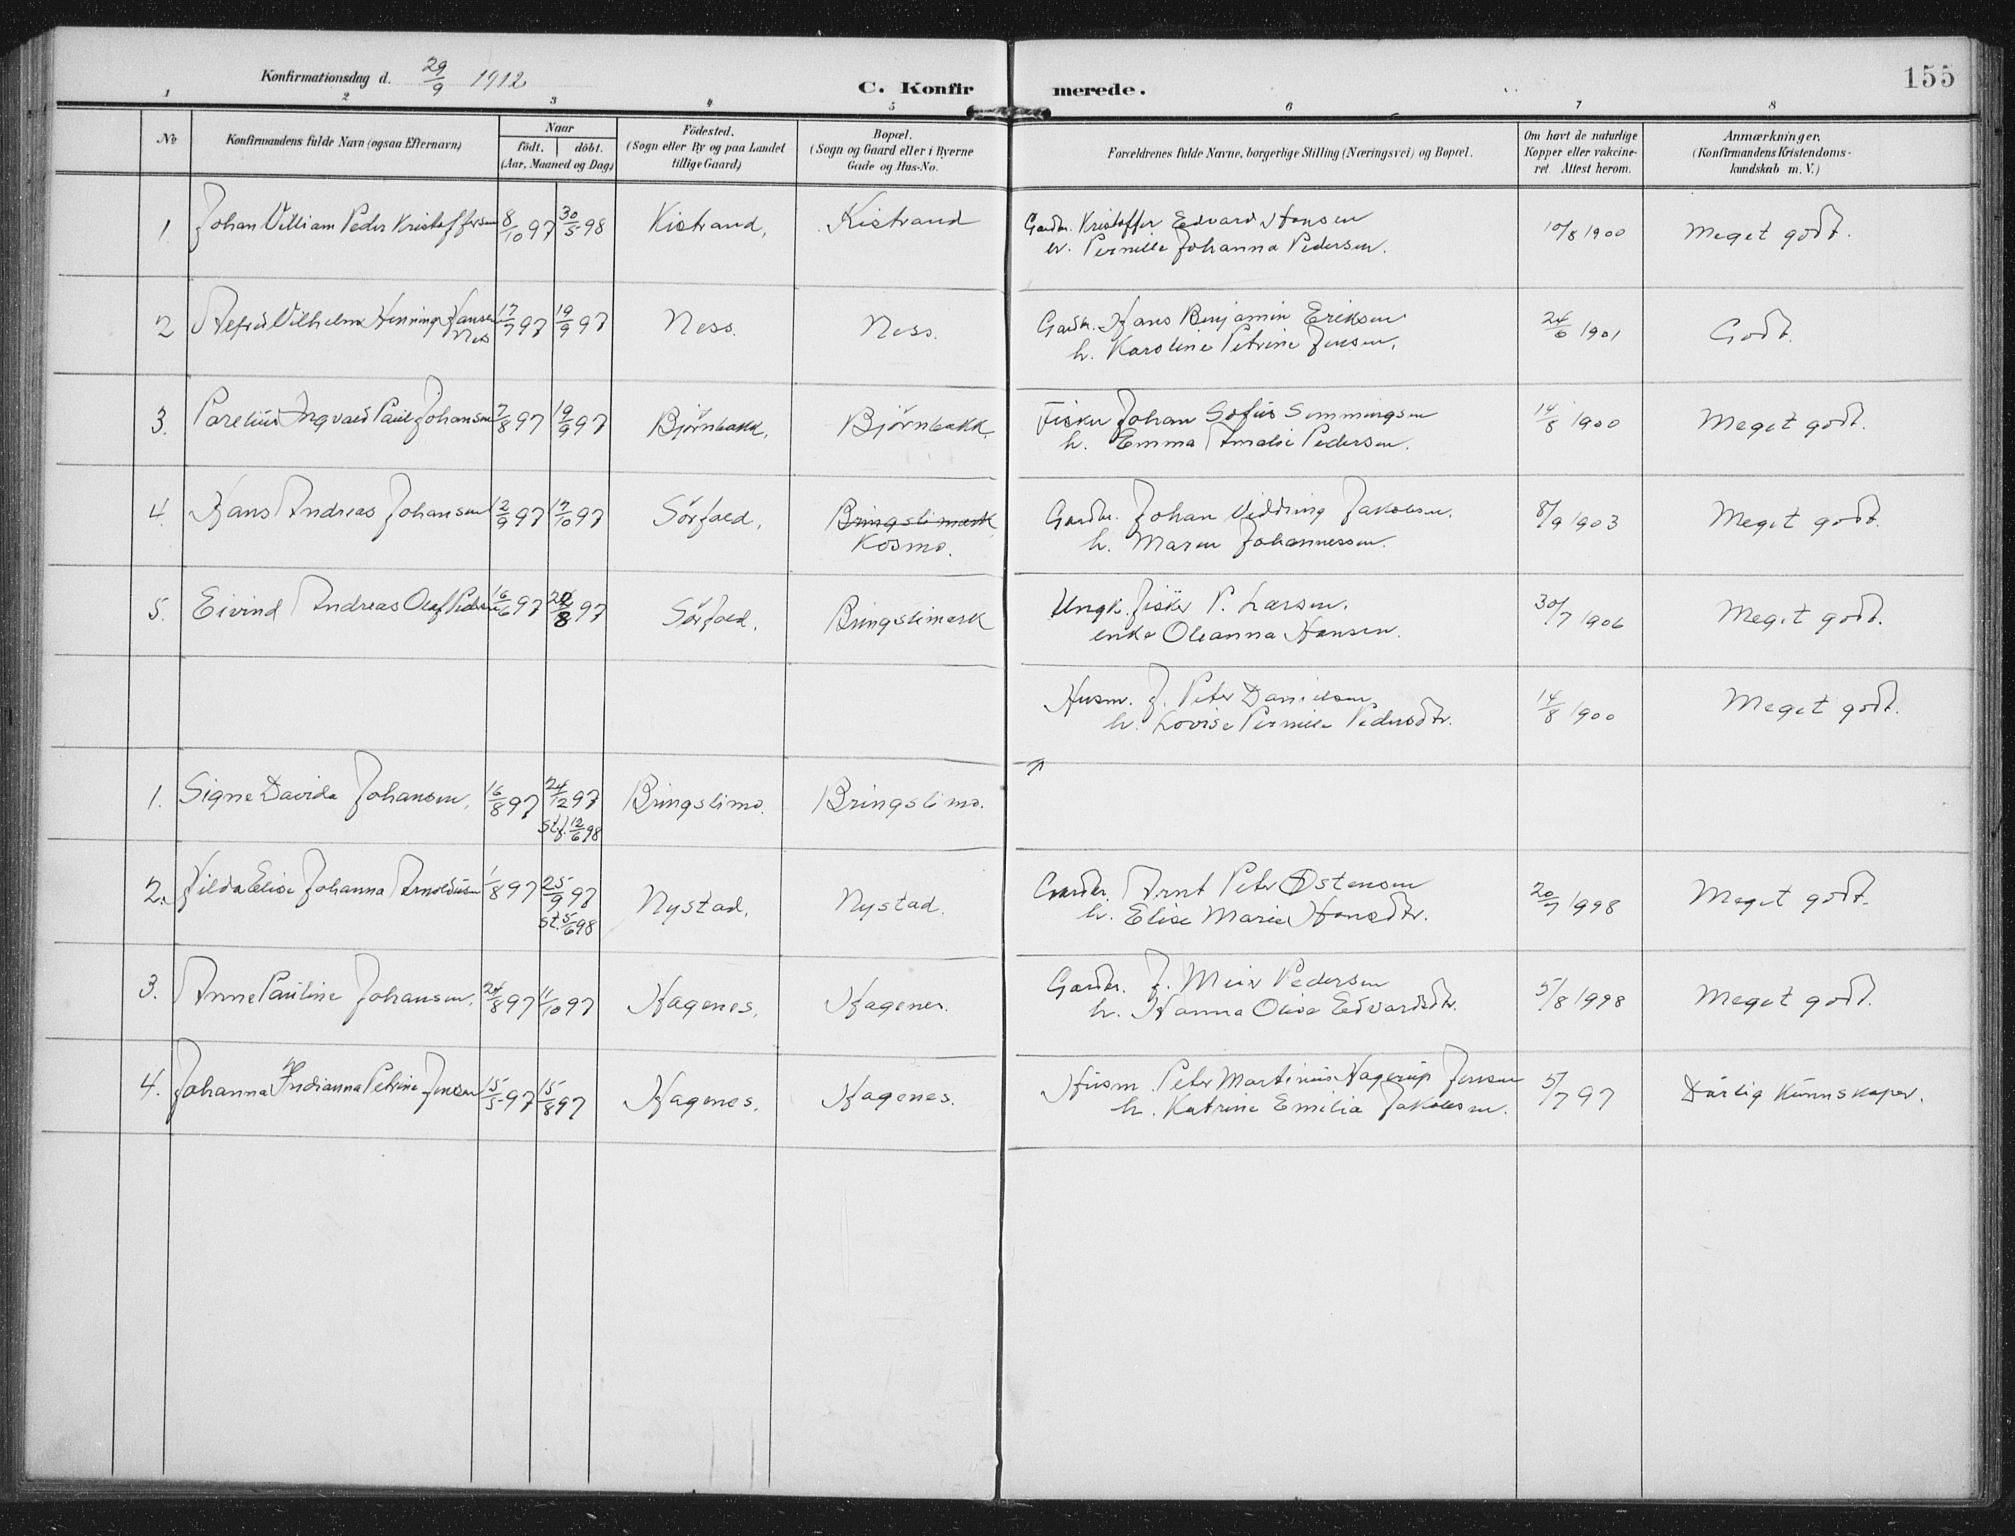 Konfirmationsdag d. 29/9 1912
C. Konfirmerede.
155
1 2 3 4 5 6 7 8
No
Konfirmandens fulde Navn (ogsaa Efternavn)
Naar
födt. döbt.
(Aar, Maaned og Dag)
Födested.
(Sogn eller By og paa Landet
tillige Gaard)
Bopæl.
(Sogn og Gaard eller i Byerne
Gade og Hus-No.
Forældrenes fulde Navne, borgerlige Stilling (Næringsvei) og Bopæl.
Om havt de naturlige
Kopper eller vakcine-
ret. Attest herom.
Anmærkninger.
(Konfirmandens Kristendoms-
kundskab m. V.)
1. Johan Villiam Peder Kristoffersen 8/10 97 30/5 98 Kistrand, Kistrand Gardbr. Kristoffer Edvard Hansen 10/8 1900 Meget godt.
Pernille Johanna Pedersen.
2 Alfred Vilhelm Henning Hansen 17/7 97 19/9 97 Ness. Ness. Gardbr. Hans Benjamin Eriksen 24/6 1901 Godt.
Nes
h. Karoline Petrine Jensen.
3. Parelius Ingvald Paul Johansen 7/8 97 19/9 97 Björnbakk, Björnbakk. Fisker Johan Sofus Simmingsen 14/8 1900 Meget godt.
h. Emma Amalie Pedersen.
4. Hans Andreas Johansen 12/9 97 17/10 97 Sörfold, Bringslimark Gardbr. Johan Viddring Jakobsen. 8/9 1903 Meget godt.
Kosmo.
h. Maren Johannessen.
5. Eivind Andreas Olaf Pedersen 16/6 97 8 97 Sörfold, Bringslimark Ungk. fisker P. Larsen. 30/7 1906 Meget godt.
enke Oleanna Hansen.
Husm. J. Peter Danielsen 14/8 1900 Meget godt.
h. Lovise Pernille Pedersdtr.
1. Signe Davida Johansen, 16/8 97 24/12 97 Bringslimo. Bringslimo.
st.f. 12/6 98
2. Hilda Elise Johanna Arnoldusen 1/8 97 25/9 97 Nystad, Nystad. Gardbr. Arnt Peter Østensen 20/7 1998 Meget godt.
st. 5/6 98
h. Elise Marie Hansdtr.
3. Anne Pauline Johansen. 24/8 97 11/10 97 Hagenes, Hagenes. Gardbr. J. Meier Pedersen 5/8 1998 Meget godt.
h. Hanna Oliva Edvardsdtr.
4. Johanna Indianna Petrine Jensen 15/5 97 15/8 97 Hagenes, Hagenes. Husm. Peter Martinius Hagerup Jensen 5/7 97 Dårlig kunnskaper.
h. Katrine Emilia Jakobsen.